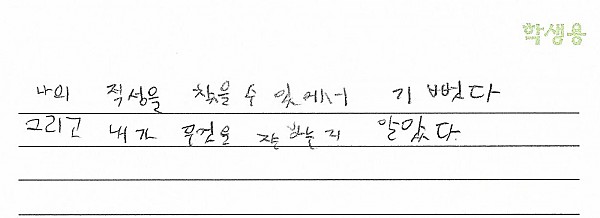 학생용
나의 적성을 찾을 수 있에서 기뻤다
그리고 내가 무엇을 잘하는지 알았다.